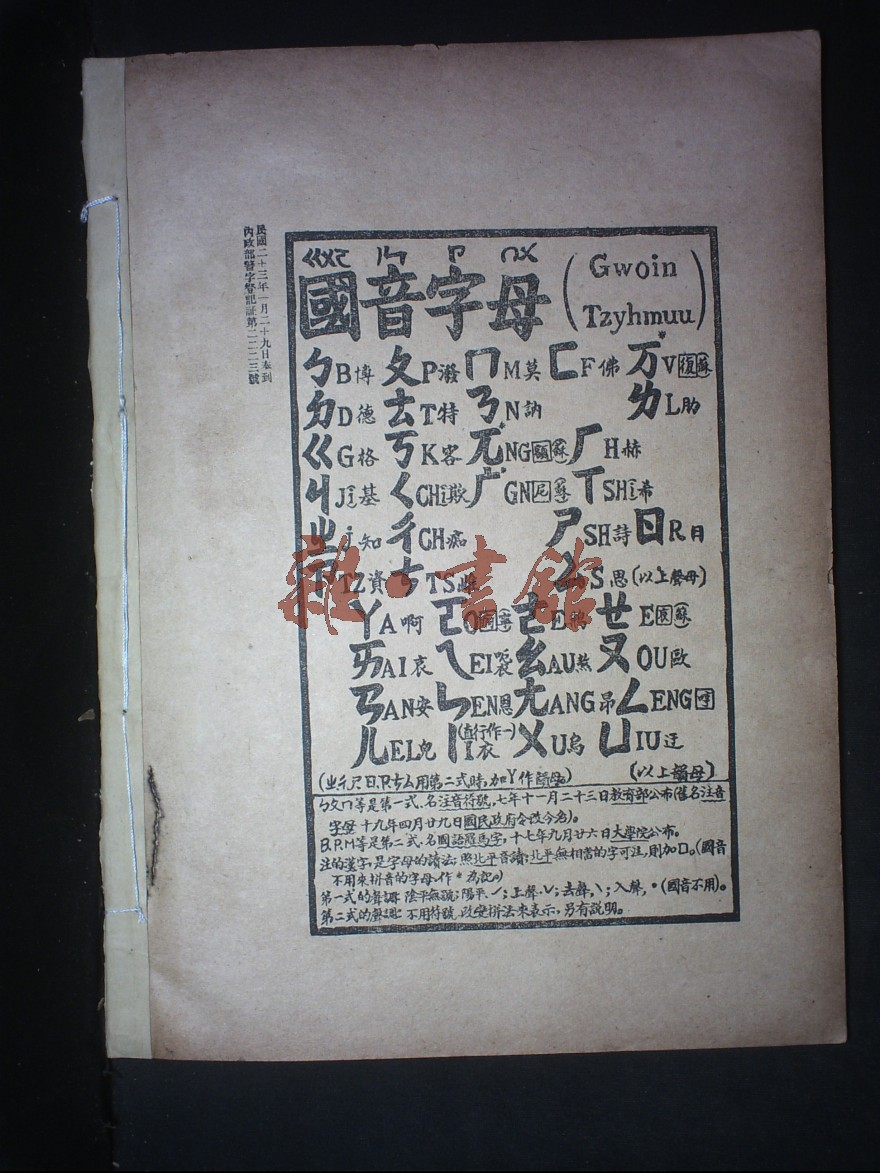 民國二十三年一月二十九日奉到
內政部警字登記証第二二二三號
ㄍㄨㄛ ㄧㄣ ㄗ ㄇㄨ
國音字母 (Gwoin Tzyhmuu)
ㄅB博 ㄆP潑 ㄇM莫 ㄈF佛 万*V復蘇
ㄉD德 ㄊT特 ㄋN訥 ㄌL肋
ㄍG格 ㄎK客 兀*NG額蘇 ㄏH赫
ㄐJi基 ㄑCHi欺 广*GN尼蘇 ㄒSHi希
ㄓj知 ㄔCH痴 ㄕSH詩 ㄖR日
ㄗTZ資 ㄘTS雌 ㄙS思(以上聲母)
ㄚA啊 ㄛO ㄜE鵝 ㄝE
ㄞAI哀 ㄟEI ㄠAU熬 ㄡOU歐
ㄢAN安 ㄣEN恩 ㄤANG昂 ㄥENG
ㄦEL兒 ㄧ(直行作一)I衣 ㄨU烏 ㄩIU迂
(ㄓㄔㄕㄖ,ㄗㄘㄙ用第二式時,加Y作韻母。) (以上韻母)
ㄅㄆㄇ等是第一式、名注音符號,七年十一月二十三日教育部公布(舊名注音
字母 十九年四月廿九日國民政府令改今名)。
B.P.M等是第二式、名國語羅馬字,十七年九月廿六日大學院公布。
注的漢字,是字母的讀法:照北平音讀;北平無相當的字可注,則加口。(國音
不用來拼音的字母,作*為記。)
第一式的聲調:陰平無號;陽平,ˊ;上聲,ˇ;去聲,ˋ;入聲,•(國音不用)。
第二式的聲調:不用符號、改變拼法來表示,另有説明。
雜·書館